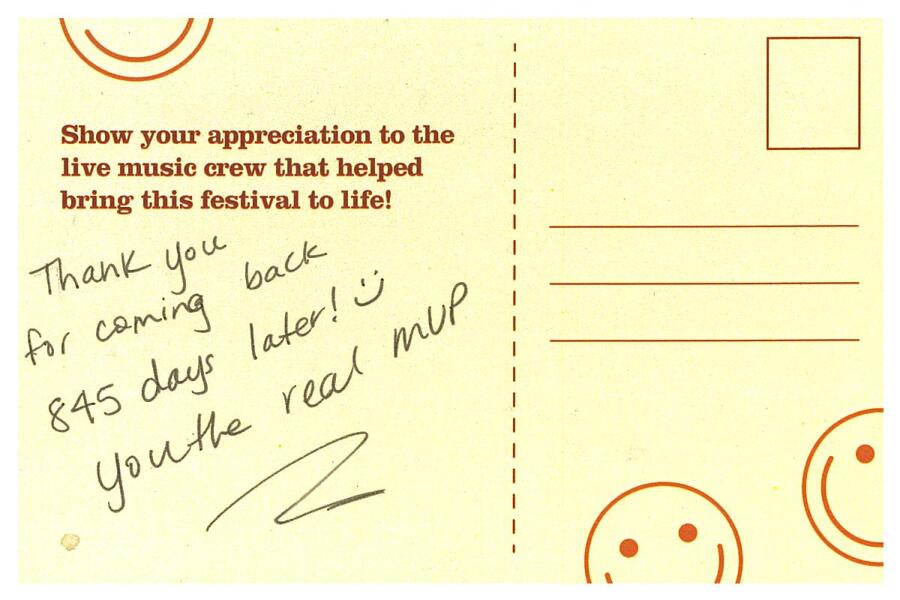 Show your appreciation to the
live music crew that helped
bring this festival to life!
Thank you
for coming back
845 days later! :)
you the real MVP